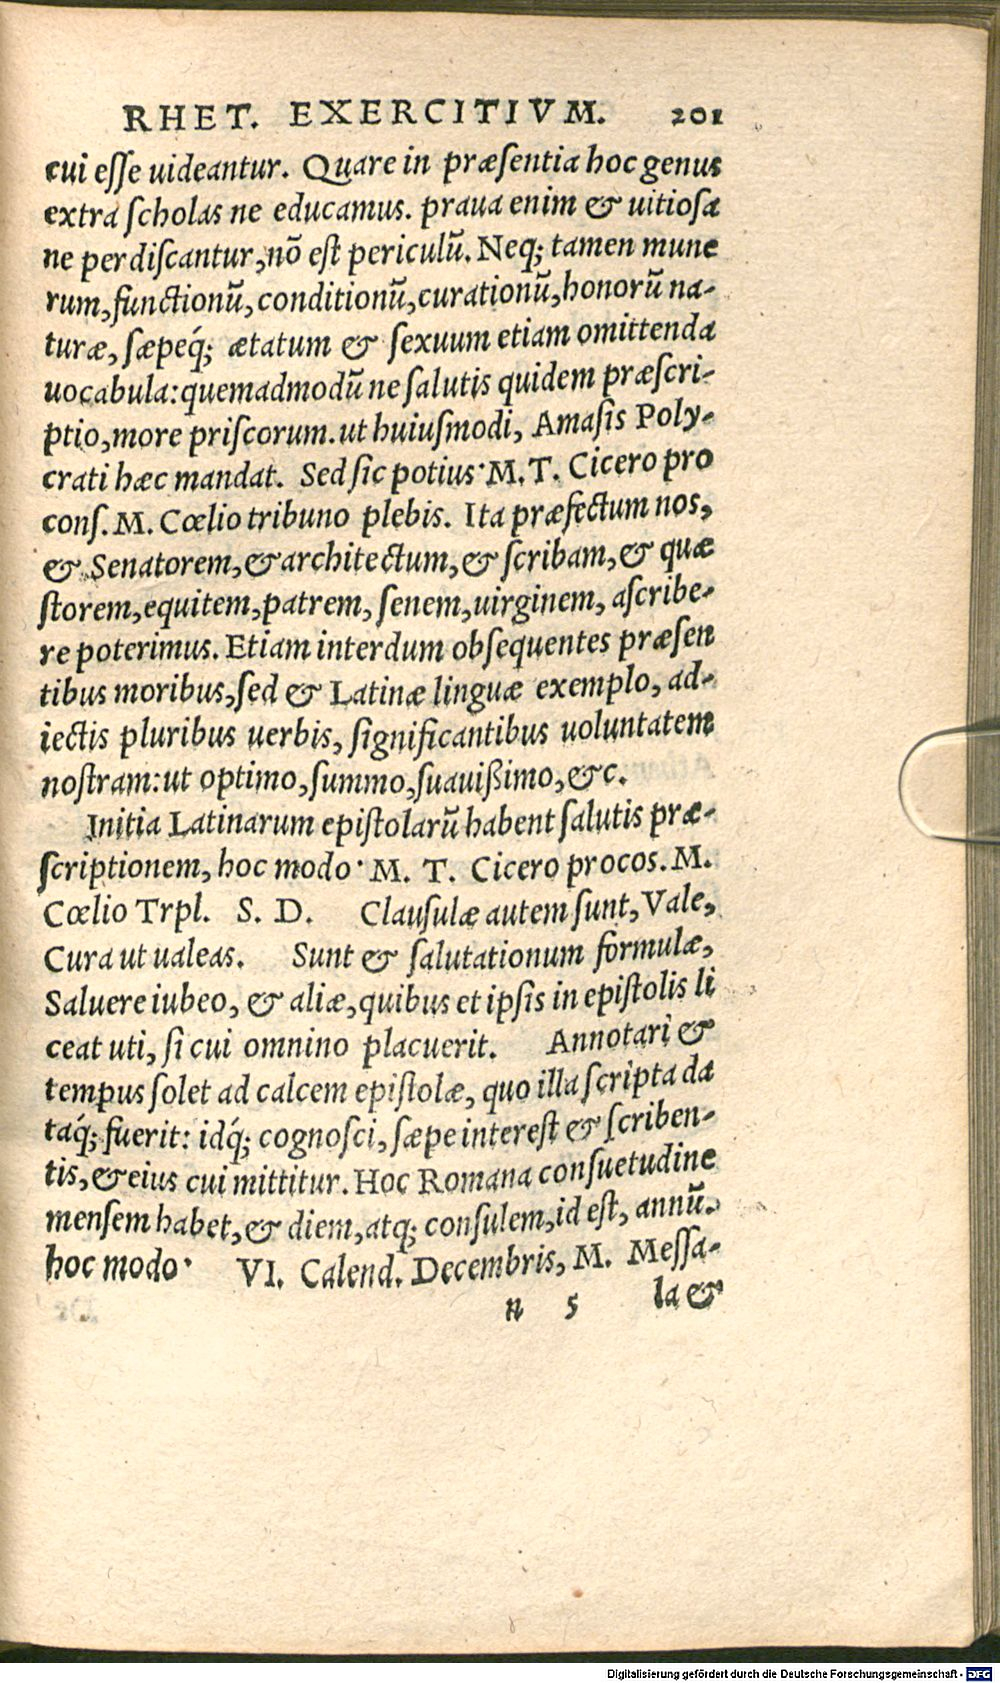 RHET. EXERCITIVM. 201
cui eſſe uideantur. Quare in præſentia hoc genus
extra ſcholas ne educamus. praua enim & uitioſa
ne perdiſcantur, nō eſt periculū. Neq; tamen mune
rum, functionū, conditionū, curationū, honorū na-
turæ, ſæpeq́; ætatum & ſexuum etiam omittenda
uocabula: quemadmodū ne ſalutis quidem præſcri-
ptio, more priſcorum. ut huiuſmodi, Amaſis Poly-
crati hæc mandat. Sed ſic potius· M. T. Cicero pro
conſ. M. Cœlio tribuno plebis. Ita præfectum nos,
& Senatorem, & architectum, & ſcribam, & quæ
ſtorem, equitem, patrem, ſenem, uirginem, aſcribe-
re poterimus. Etiam interdum obſequentes præſen
tibus moribus, ſed & Latinæ linguæ exemplo, ad-
iectis pluribus uerbis, ſignificantibus uoluntatem
noſtram: ut optimo, ſummo, ſuauißimo, &c.
Initia Latinarum epiſtolarū habent ſalutis præ-
ſcriptionem, hoc modo· M. T. Cicero procos. M.
Cœlio Trpl. S. D. Clauſulæ autem ſunt, Vale,
Cura ut ualeas. Sunt & ſalutationum formulæ,
Saluere iubeo, & aliæ, quibus et ipſis in epiſtolis li
ceat uti, ſi cui omnino placuerit. Annotari &
tempus ſolet ad calcem epiſtolæ, quo illa ſcripta da
taq́; fuerit: idq́; cognoſci, ſæpe intereſt & ſcriben-
tis, & eius cui mittitur. Hoc Romana conſuetudine
menſem habet, & diem, atq; conſulem, id eſt, annū.
hoc modo· VI. Calend. Decembris, M. Meſſa-
n 5 la &
Digitalisierung gefördert durch die Deutsche Forschungsgemeinschaft - DFG